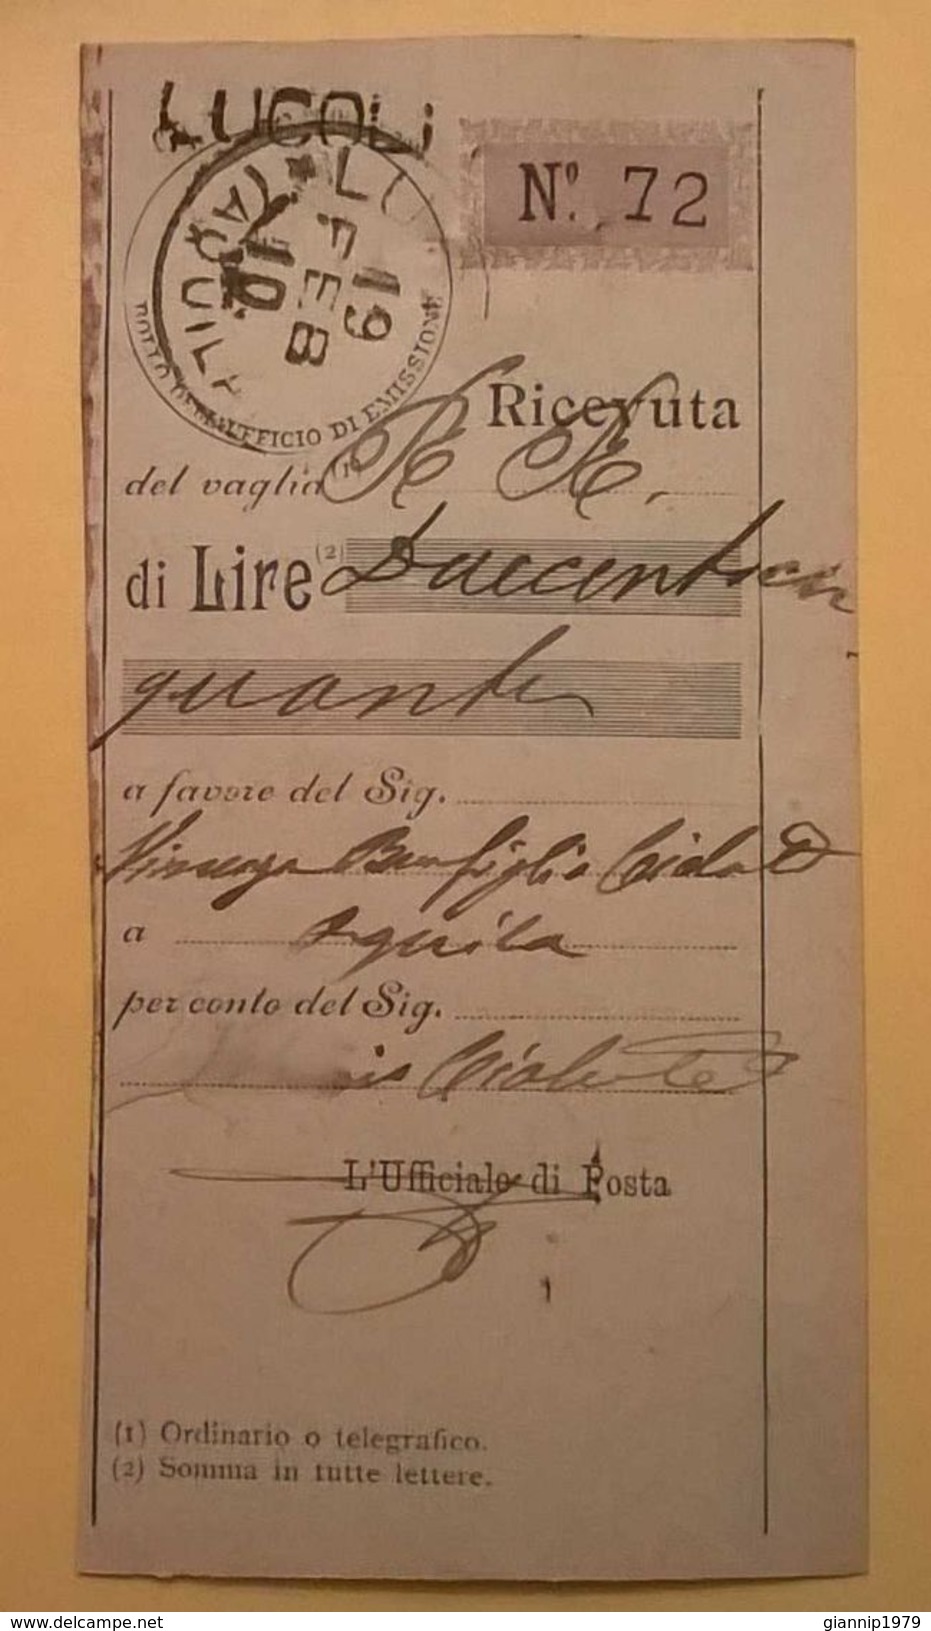 LUCOLI
LU
AQUILA
19
FEB
10
BOLLO DELL'UFFICIO DI EMISSIONE
Nº. 72
Ricevuta
del vaglia (1)
di Lire (2) Duecentocin
quanta
a favore del Sig.
Vincenzo Bonfiglio
a Aquila
per conto del Sig.
L'Ufficiale di Posta
(1) Ordinario o telegrafico.
(2) Somma in tutte lettere.
delcampe.net
giannip1979